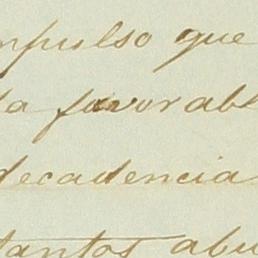 mpulso que
la favorabl
decadencia
tantos abu